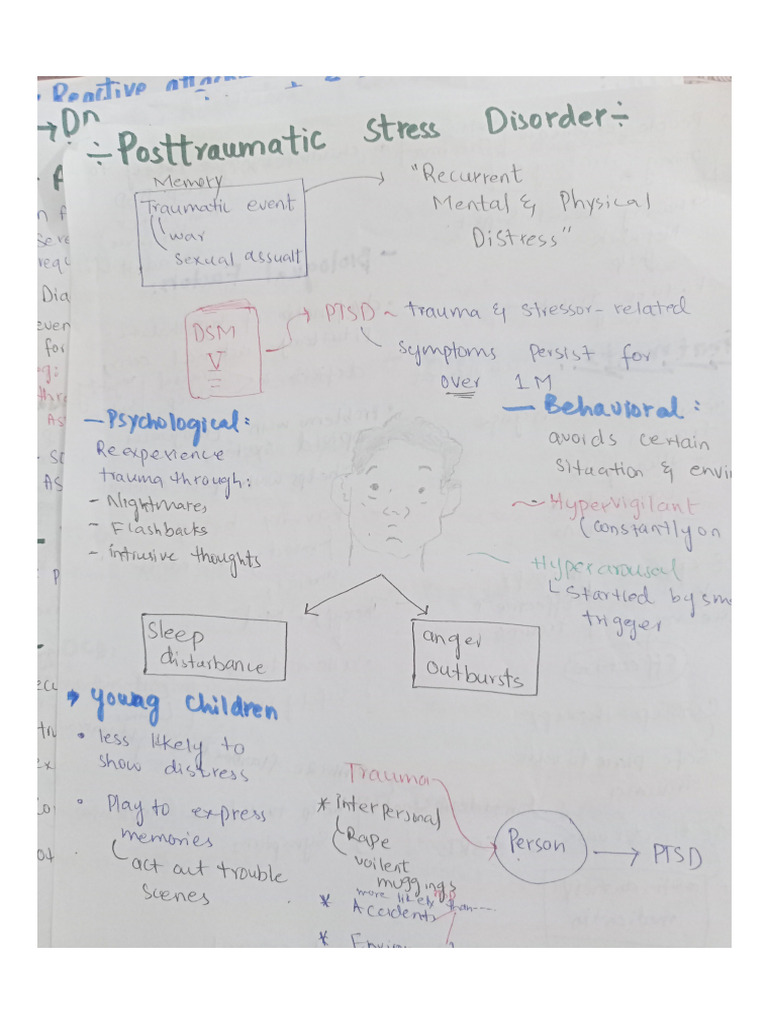 Reactive
→ Dn
÷ Posttraumatic Stress Disorder ÷
Memory
Traumatic event
war
sexual assualt
"Recurrent
Mental & Physical
Distress"
DSM
V
PTSD ~ trauma & stressor-related
symptoms persist for
over 1 M
- Psychological:
Reexperience
trauma through:
- Nightmares
- Flashbacks
- intrusive thoughts
- Behavioral:
avoids certain
situation & envi
~ Hypervigilant
(constantly on
Hyperarousal
startled by sm
trigger
Sleep
disturbance
anger
outbursts
→ young children
• less likely to
show distress
• Play to express
memories
act out trouble
scenes
Trauma
* interpersonal
Rape
voilent
muggings
more likely than----
* Accidents
* Envi
Person → PTSD
Dia
even
for
AS
AS